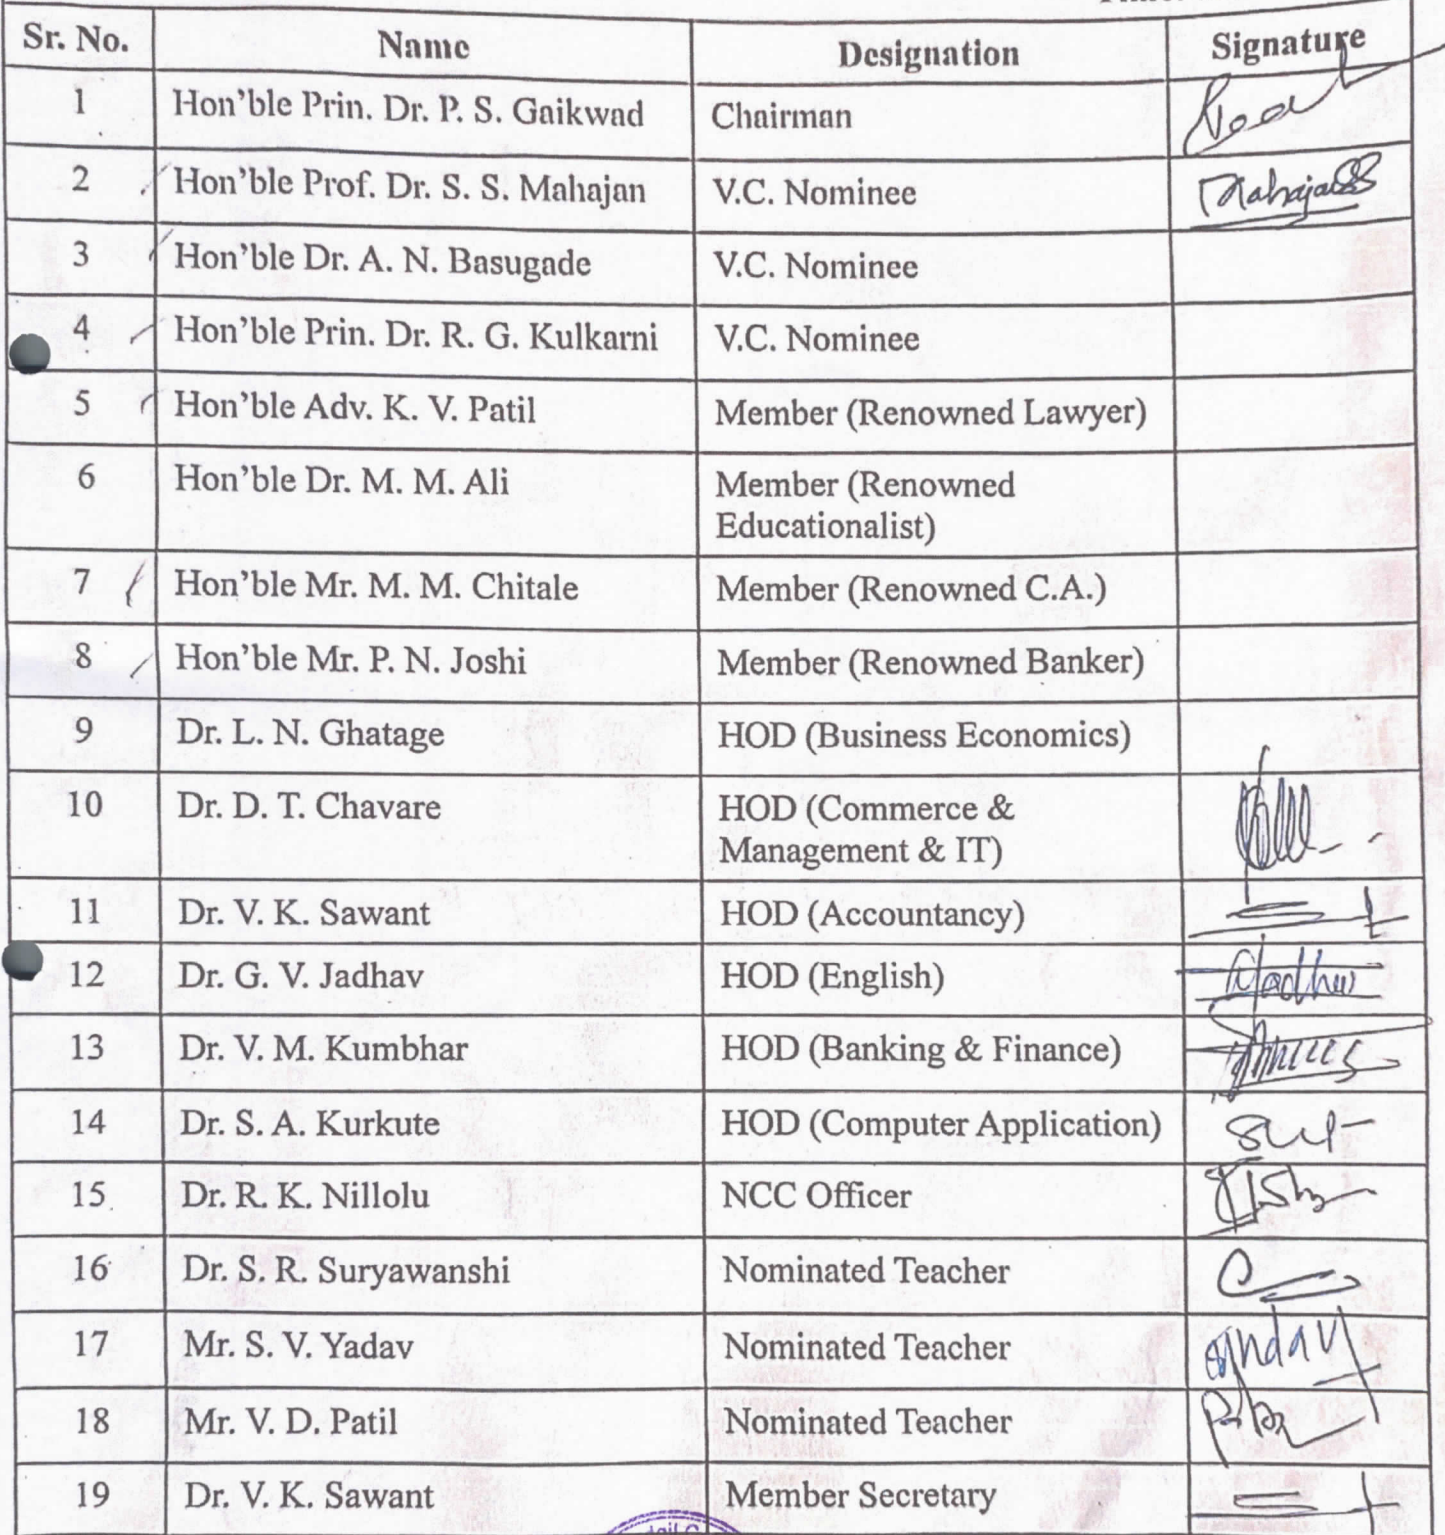 Sr. No. Name Designation Signature
1 Hon'ble Prin. Dr. P. S. Gaikwad Chairman
2 Hon'ble Prof. Dr. S. S. Mahajan V.C. Nominee MahajanSS
3 Hon'ble Dr. A. N. Basugade V.C. Nominee
4 Hon'ble Prin. Dr. R. G. Kulkarni V.C. Nominee
5 Hon'ble Adv. K. V. Patil Member (Renowned Lawyer)
6 Hon'ble Dr. M. M. Ali Member (Renowned
Educationalist)
7 Hon'ble Mr. M. M. Chitale Member (Renowned C.A.)
8 Hon'ble Mr. P. N. Joshi Member (Renowned Banker)
9 Dr. L. N. Ghatage HOD (Business Economics)
10 Dr. D. T. Chavare HOD (Commerce &
Management & IT)
11 Dr. V. K. Sawant HOD (Accountancy)
12 Dr. G. V. Jadhav HOD (English)
13 Dr. V. M. Kumbhar HOD (Banking & Finance)
14 Dr. S. A. Kurkute HOD (Computer Application)
15 Dr. R. K. Nillolu NCC Officer
16 Dr. S. R. Suryawanshi Nominated Teacher
17 Mr. S. V. Yadav Nominated Teacher
18 Mr. V. D. Patil Nominated Teacher
19 Dr. V. K. Sawant Member Secretary